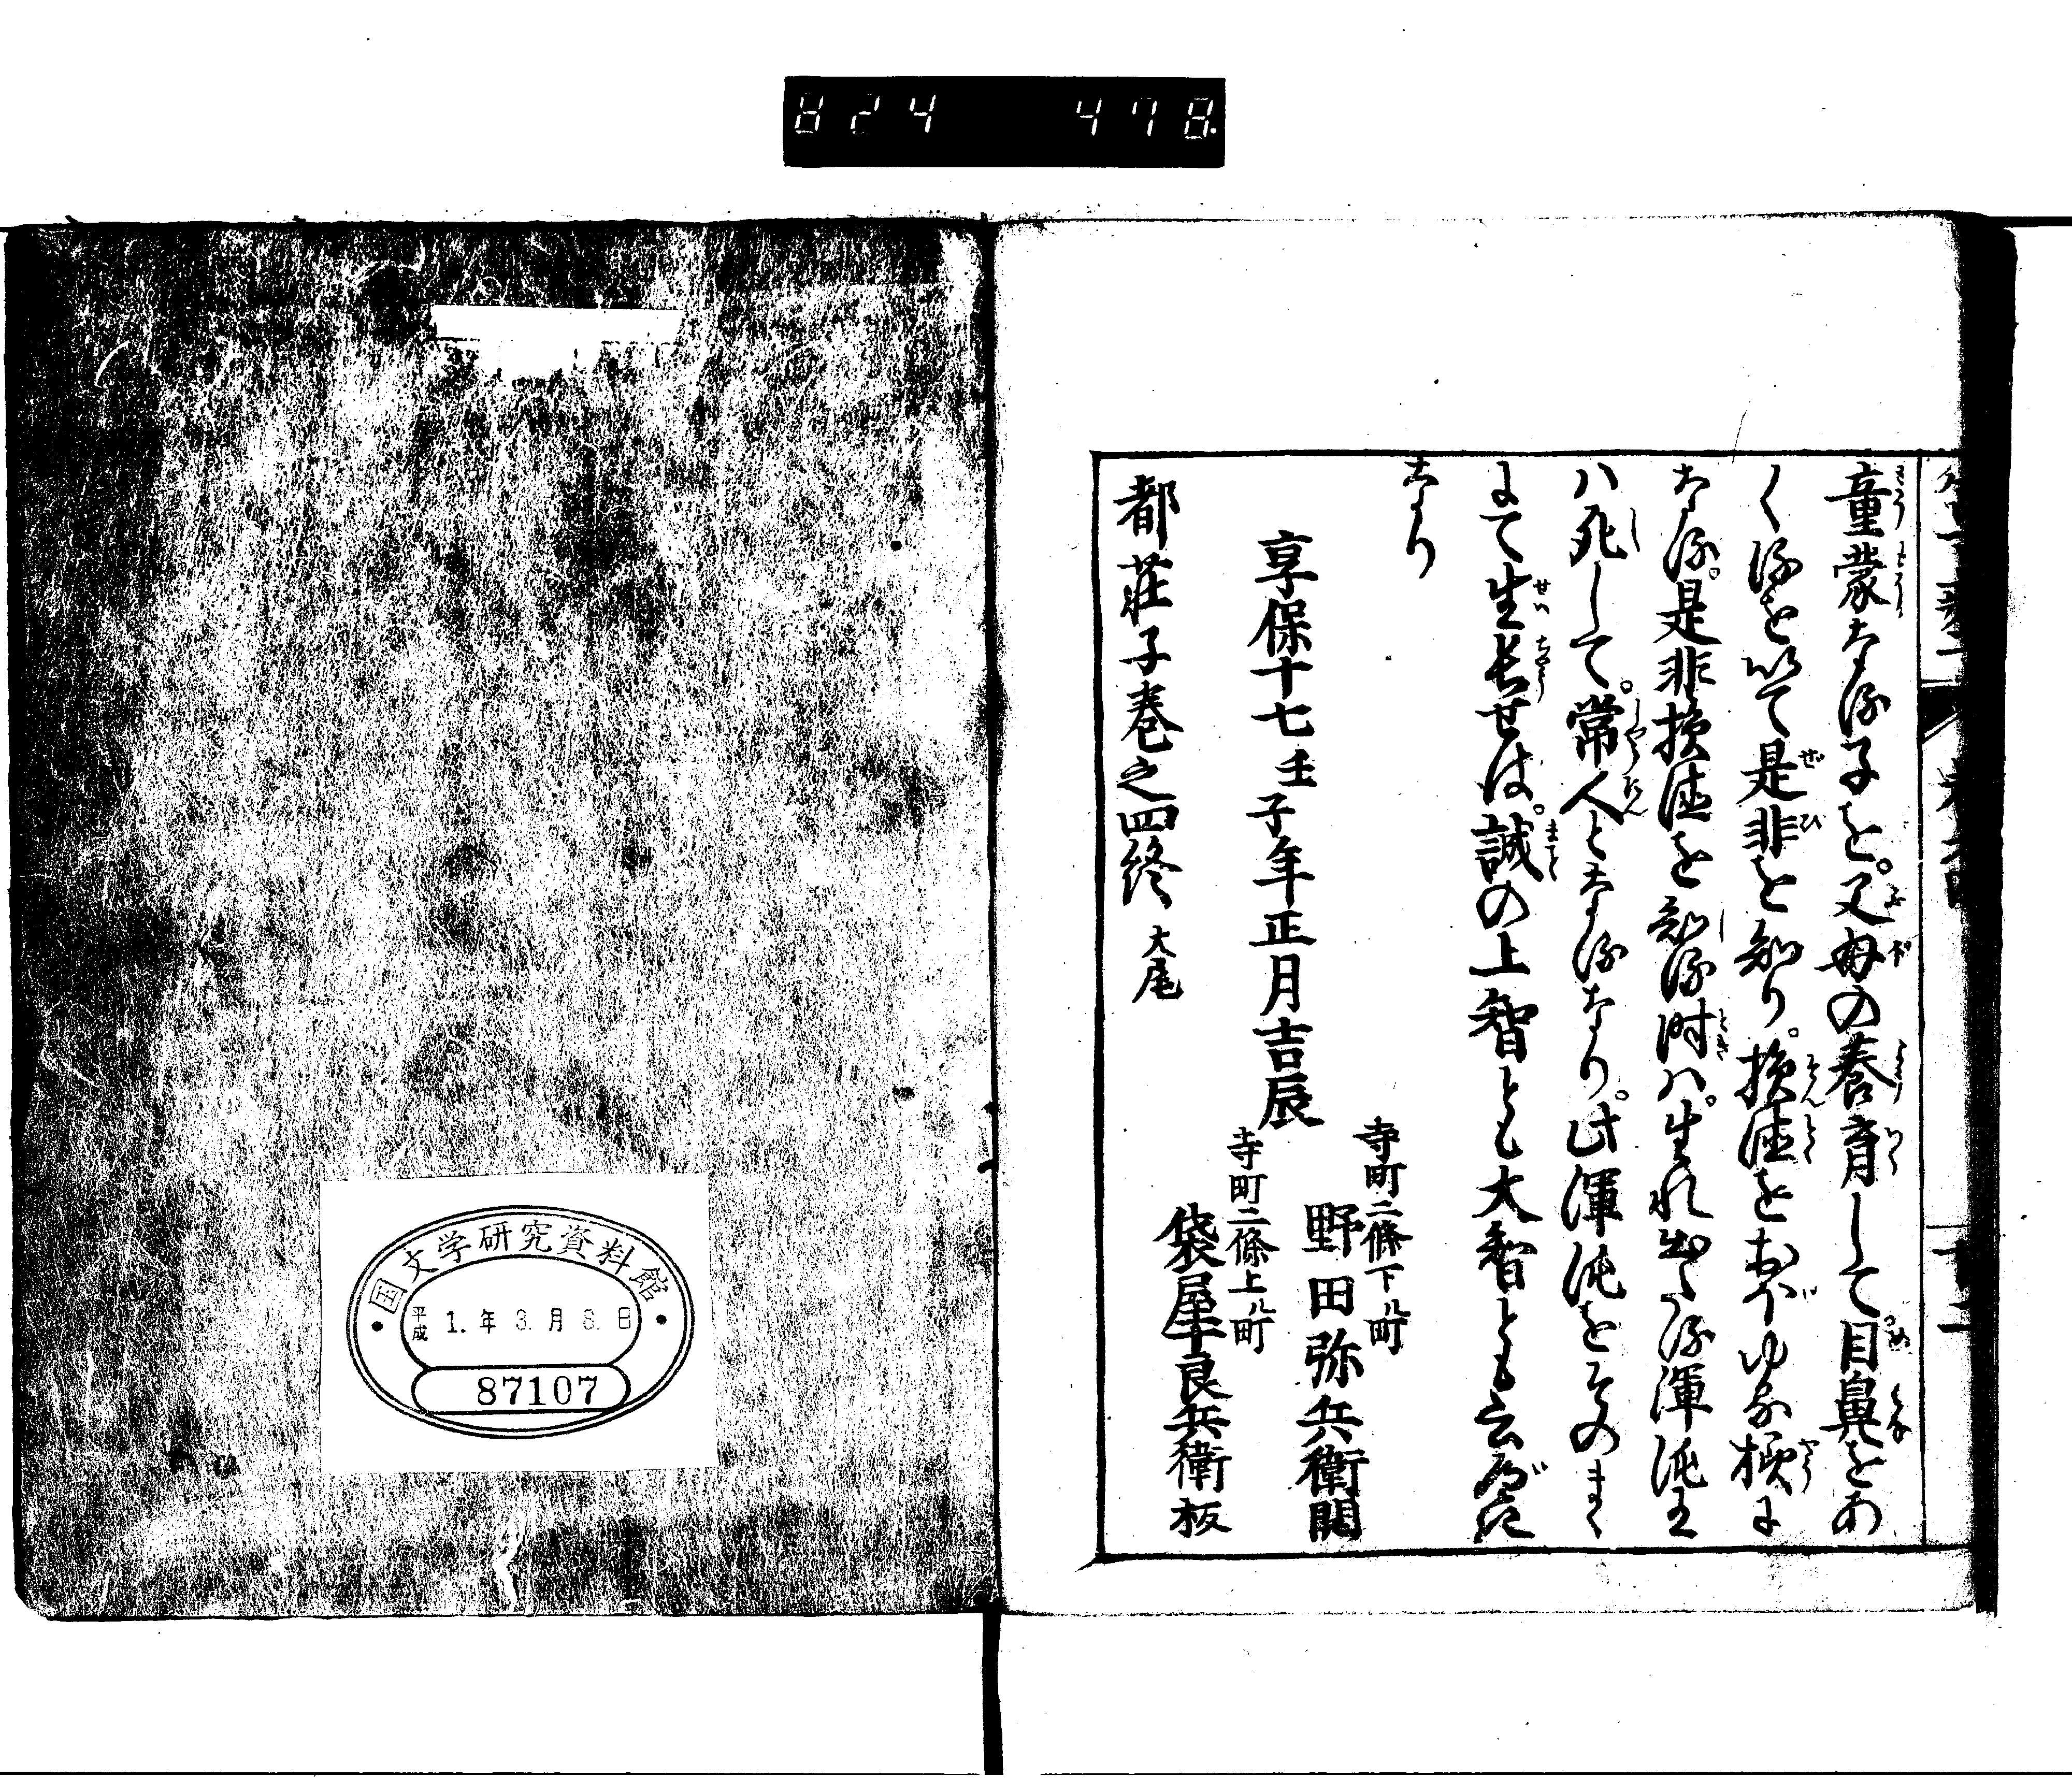 824 478.
童蒙なる子を。父母の養育して。目鼻をあ
く。るを以て是非を知り。損徳をおぼゆる様に
なる。是非損徳を知る時ハ。生れ出たる渾沌王
ハ死して。常人となるなり。此渾沌をそのまゝ
にて生長せは。誠の上智とも大智とも云べき
なり
享保十七壬子年正月吉辰
寺町二條下ル町
野田弥兵衛開
寺町二條上ル町
袋屋十良兵衛板
都荘子巻之四終 大尾
国文学研究資料館
平成 1. 年 3. 月 8. 日
87107